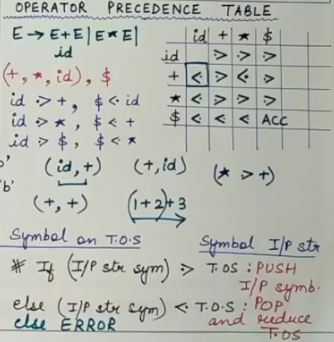 OPERATOR PRECEDENCE TABLE
E → E+E | E*E |
id
(+, *, id), $
id ⋗ +, $ ⋖ id
id ⋗ *, $ ⋖ +
id ⋗ $, $ ⋖ *
id + * $
id ⋗ ⋗ ⋗
+ ⋖ ⋗ ⋖ ⋗
* ⋖ ⋗ ⋗ ⋗
$ ⋖ ⋖ ⋖ ACC
(id, +) (+, id) (* ⋗ +)
'b'
(+, +) (1+2)+3
Symbol on T.O.S Symbol I/p str
# If (I/P str sym) ⋗ T.OS : PUSH
I/P symb.
else (I/P str sym) ⋖ T.O.S : POP
and reduce
else ERROR T.OS